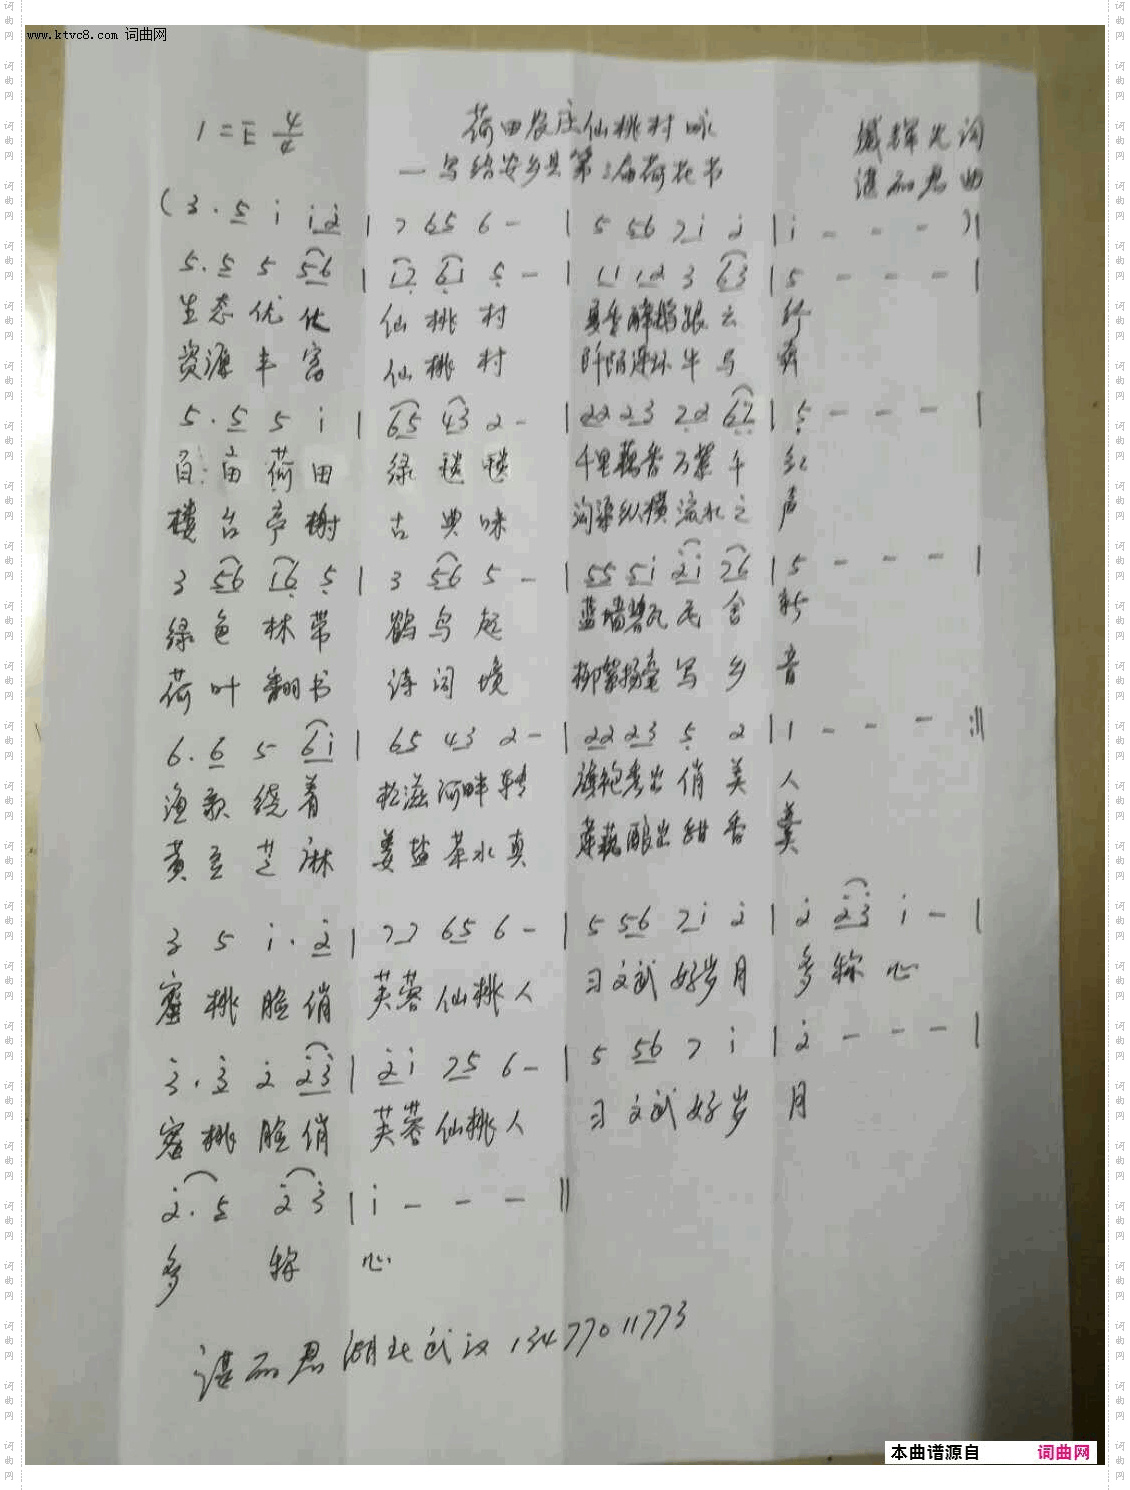 www.ktvc8.com 词曲网
1=E 4/4
荷田农庄仙桃村
—写给安乡县第 届荷花节
词
曲
(3·5 i i2 | 7 65 6 - | 5 56 7i 2 | i - - - )|
5·5 5 56 | 12 61 5 - | 11 12 3 63 | 5 - - - |
生态优化 仙桃村 云
资源丰富 仙桃村 阡陌 牛马
5·5 5 i | 65 43 2 - | 22 23 22 62 | 5 - - - |
百亩荷田 绿毯毯 千里藕香万紫千红
楼台亭榭 古典味 沟渠纵横流水之声
3 56 16 5 | 3 56 5 - | 55 5i 2i 76 | 5 - - - |
绿色林带 鹤鸟起 蓝墙碧瓦民舍新
荷叶翻书 诗词境 柳絮扬 写乡音
6·6 5 6i | 65 43 2 - | 22 23 5 2 | 1 - - - :||
渔歌绕着 松滋河畔转 旗袍秀出俏美人
黄豆芝麻 姜盐茶水真 莲藕酿出甜香羹
3 5 i·2 | 77 65 6 - | 5 56 7i 2 | 2 23 i - |
蜜桃脸俏 芙蓉仙桃人 习文武好岁月 多称心
3·3 2 23 | 2i 75 6 - | 5 56 7 i | 2 - - - |
蜜桃脸俏 芙蓉仙桃人 习文武好岁月
2·5 23 | i - - - ||
多称心
湖北武汉13477011773
本曲谱源自 词曲网